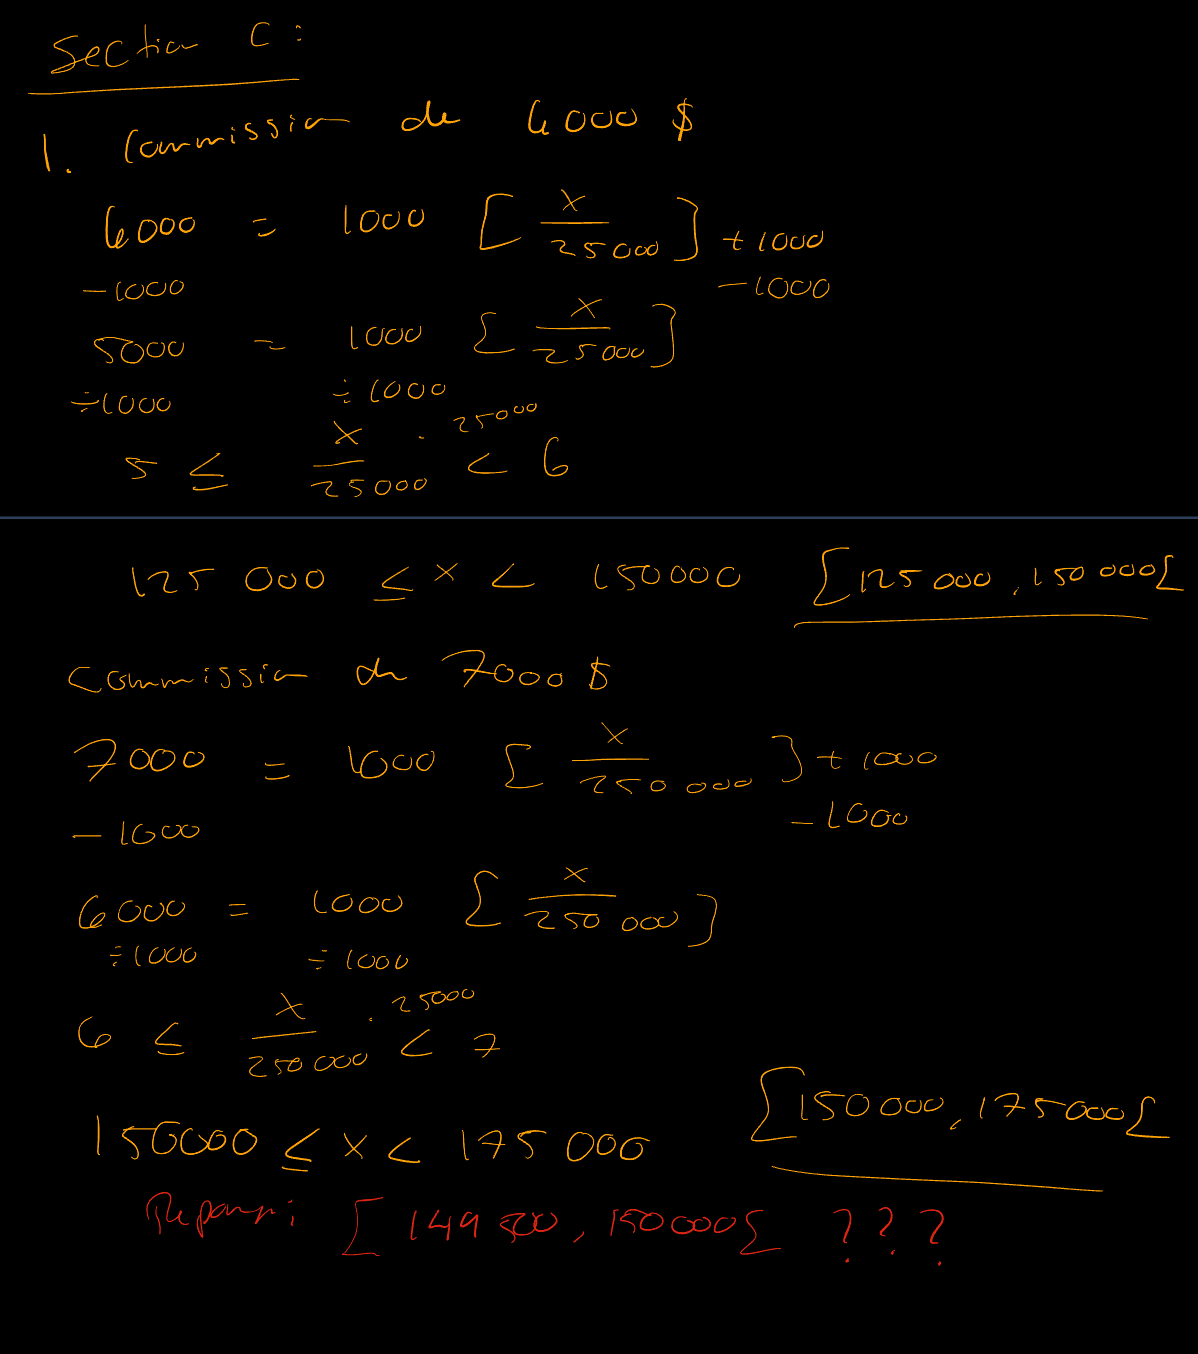 Section C :
1. Commission de 6000 $
6000 = 1000 [ x / 25000 ] + 1000
-1000 -1000
5000 = 1000 [ x / 25000 ]
÷1000 ÷1000
5 ≤ x / 25000 · 25000 < 6
125 000 ≤ x < 150000 [125 000, 150 000[
Commission de 7000 $
7000 = 1000 [ x / 250 000 ] + 1000
-1000 -1000
6000 = 1000 [ x / 250 000 ]
÷1000 ÷1000
6 ≤ x / 250000 · 25000 < 7
150000 ≤ x < 175 000 [150000, 175000[
: [149 500, 150000[ ???